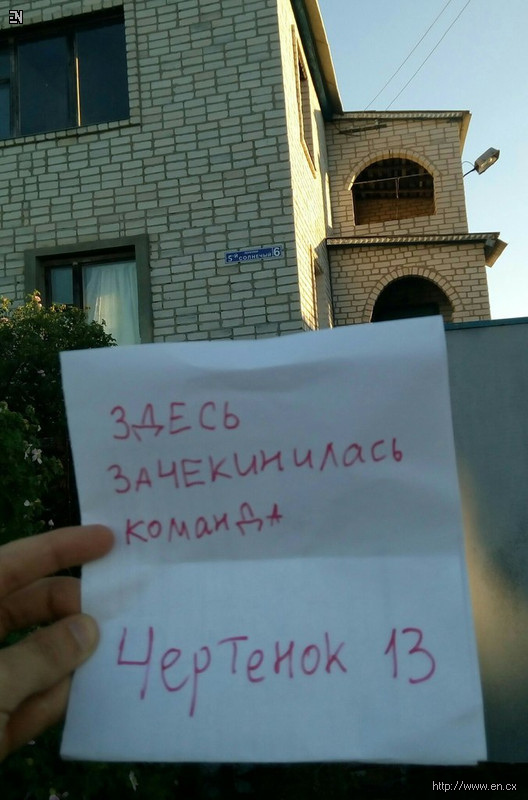 EN
5-й СОЛНЕЧНЫЙ 6
ЗДЕСЬ
ЗАЧЕКИНИЛАСЬ
КОМАНДА
Чертенок 13
http://www.en.cx